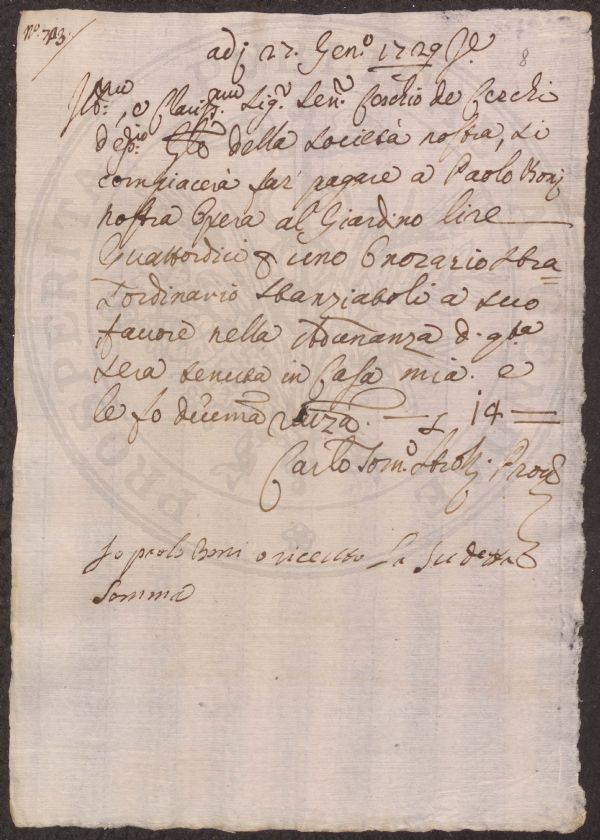 N.º 743.
8
adj 27. Gen.º 1729
Ill.mo, e Clariss.mo Sig.r Sen.r Cerchio de Cerchi
della Società nostra, si
compiacerà far pagare a Paolo Boni
nostra Opera al Giardino lire
Quattordici uno Onorario stra
ordinario stanziatoli a suo
favore nella Adunanza d. q.ta
sera tenuta in Casa mia. e
le fo devma revza. — £ 14 =
Carlo Tom.º Strozzi Prov.e
Io paolo Boni o riceuto La Sudetta
Somma
PROSPERITÀ